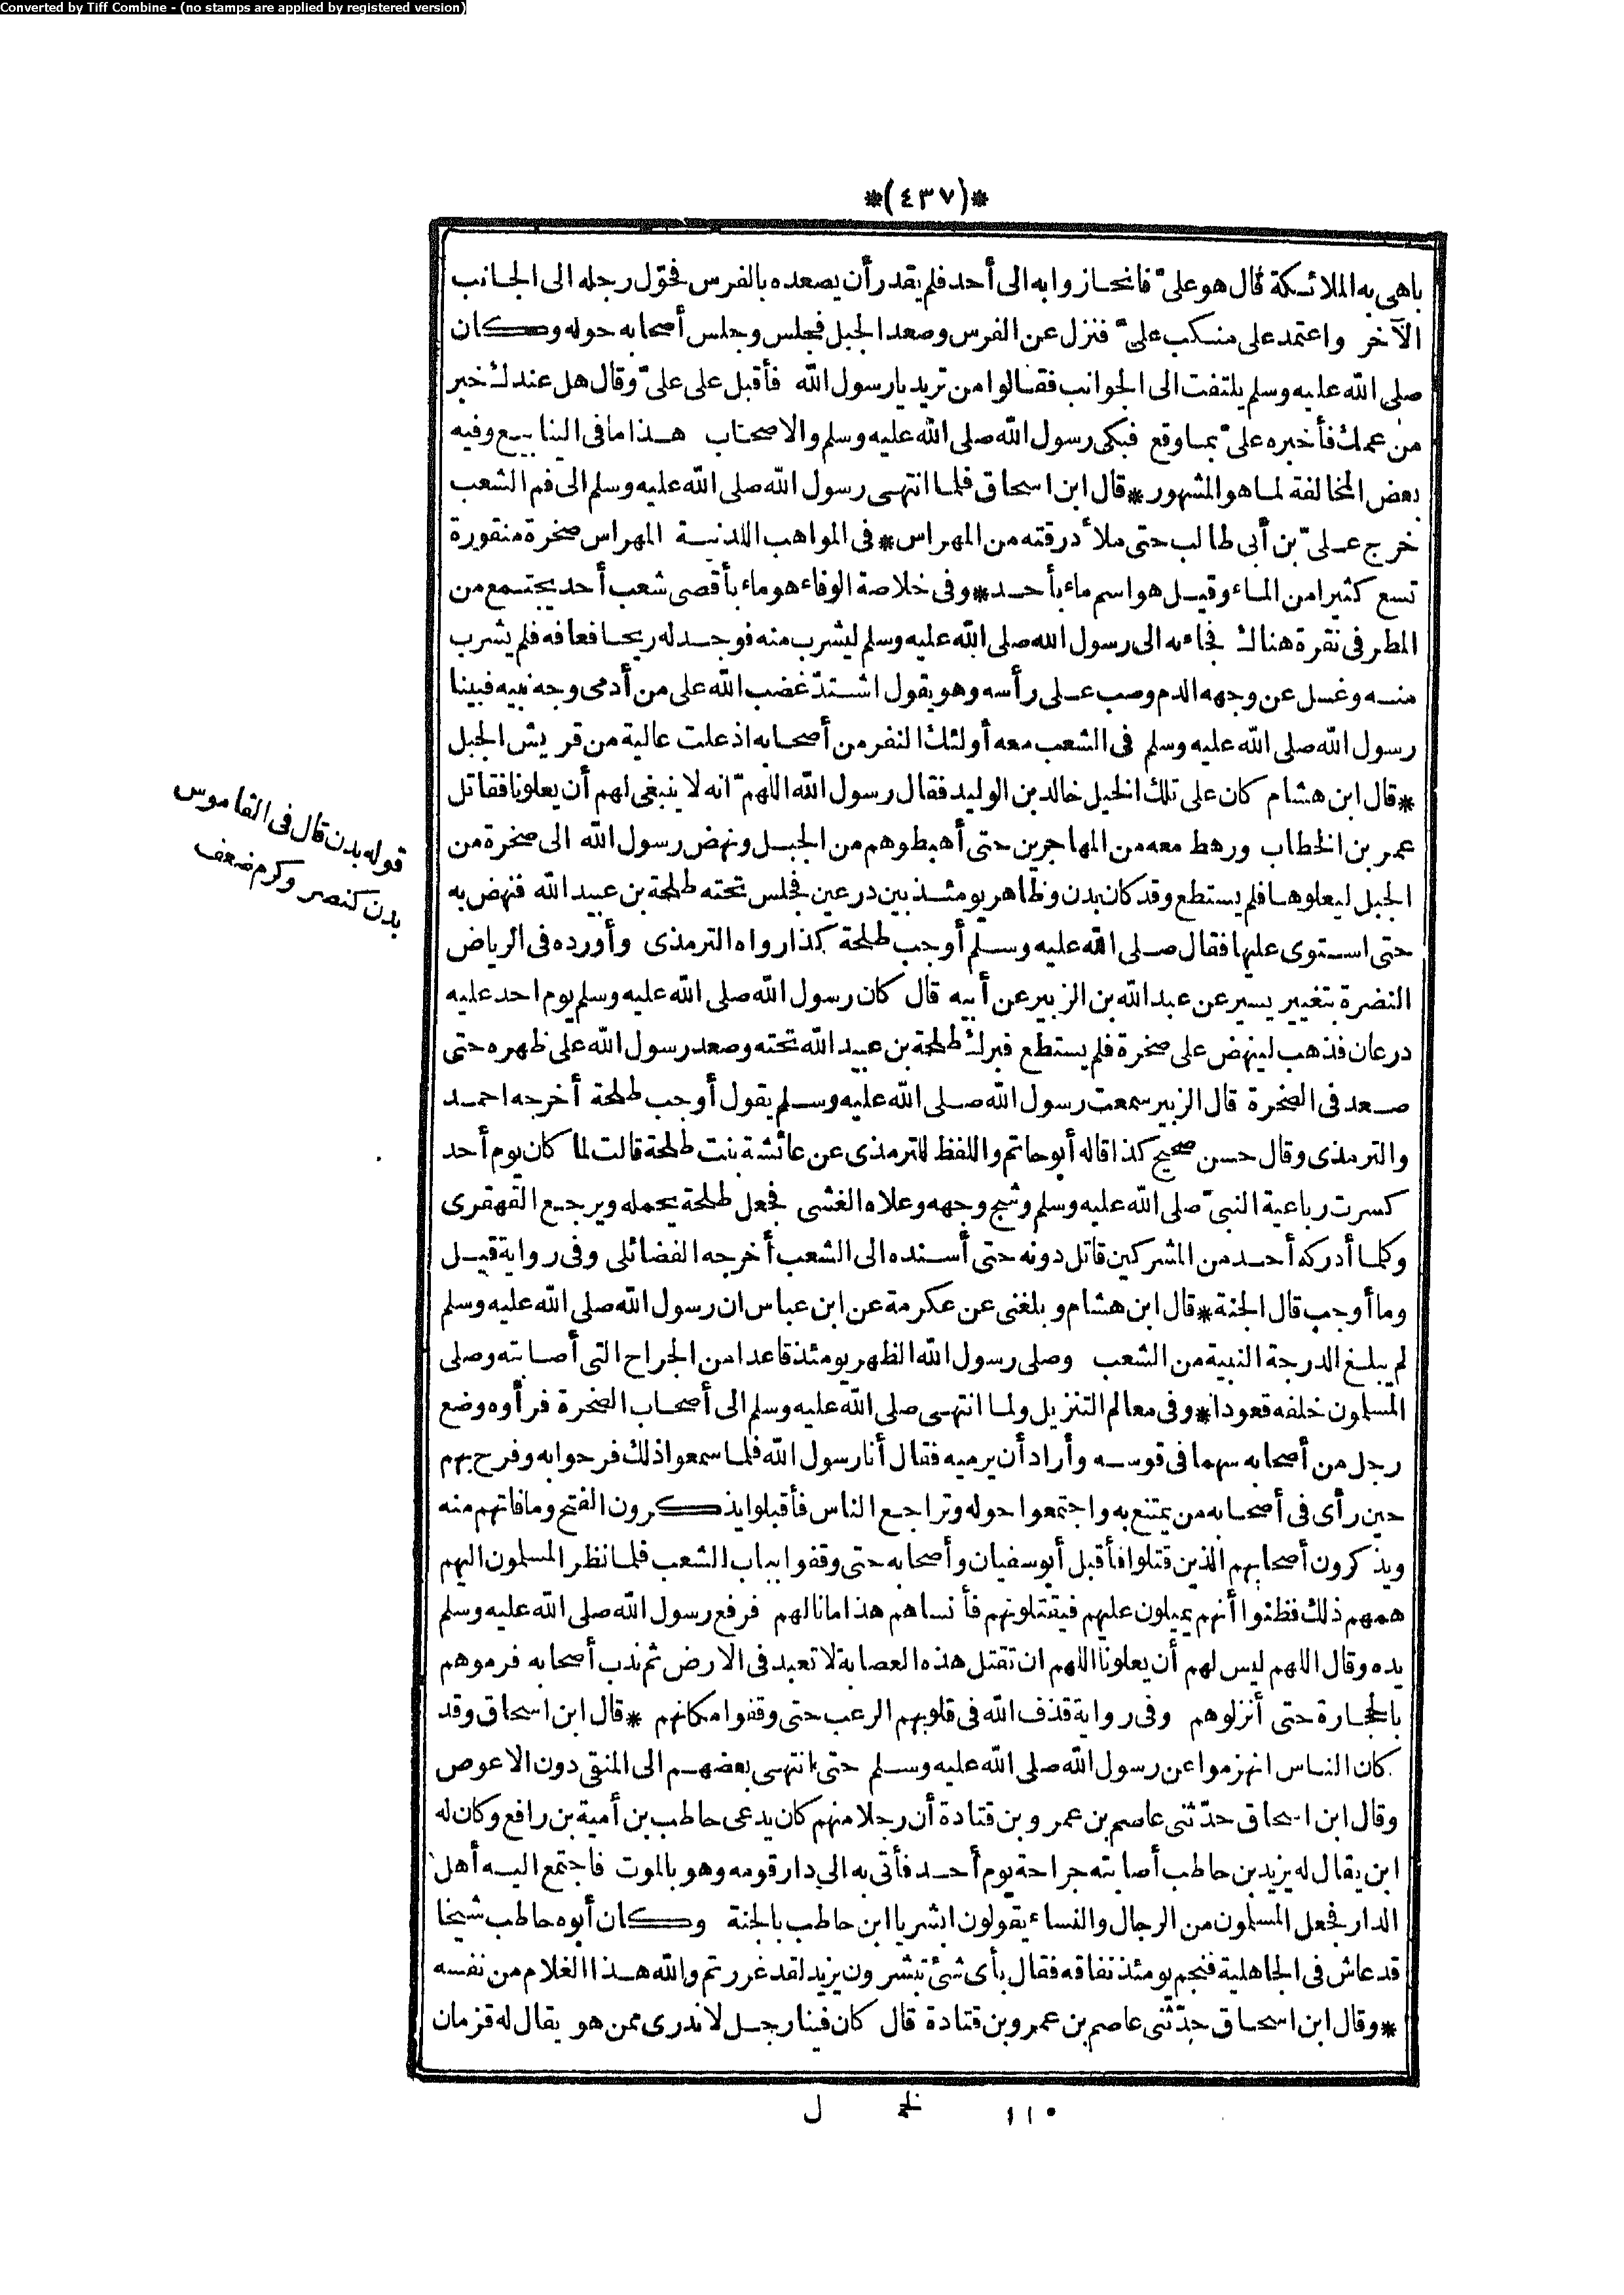 Converted by Tiff Combine - (no stamps are applied by registered version)
*(٤٣٧)*
باهى به الملائكة قال هو علىّ فانحازوا به الى أحد فلم يقدر أن يصعده بالفرس فحوّل رجله الى الجانب
الآخر واعتمد على منكب علىّ فنزل عن الفرس وصعد الجبل فجلس وجلس أصحابه حوله وكان
صلى الله عليه وسلم يلتفت الى الجوانب فقالوا من تريد يا رسول الله فأقبل على علىّ وقال هل عندك خبر
من عمك فأخبره علىّ بما وقع فبكى رسول الله صلى الله عليه وسلم والاصحاب هذا ما فى الينابيع وفيه
بعض المخالفة لما هو المشهور * قال ابن اسحاق فلما انتهى رسول الله صلى الله عليه وسلم الى فم الشعب
خرج علىّ بن أبى طالب حتى ملأ درقته من المهراس * فى المواهب اللدنية المهراس صخرة منقورة
تسع كثيرا من الماء وقيل هو اسم ماء بأحد * وفى خلاصة الوفاء هو ماء بأقصى شعب أحد يجتمع من
المطر فى نقرة هناك فجاء به الى رسول الله صلى الله عليه وسلم ليشرب منه فوجد له ريحا فعافه فلم يشرب
منه وغسل عن وجهه الدم وصب على رأسه وهو يقول اشتدّ غضب الله على من أدمى وجه نبيه فبينا
رسول الله صلى الله عليه وسلم فى الشعب معه أولئك النفر من أصحابه اذ علت عالية من قريش الجبل
* قال ابن هشام كان على تلك الخيل خالد بن الوليد فقال رسول الله اللهمّ انه لا ينبغى لهم أن يعلونا فقاتل
عمر بن الخطاب ورهط معه من المهاجرين حتى أهبطوهم من الجبل ونهض رسول الله الى صخرة من
الجبل ليعلوها فلم يستطع وقد كان بدن وظاهر يومئذ بين درعين فجلس تحته طلحة بن عبيد الله فنهض به
حتى استوى عليها فقال صلى الله عليه وسلم أوجب طلحة كذا رواه الترمذى وأورده فى الرياض
النضرة بتغيير يسير عن عبد الله بن الزبير عن أبيه قال كان رسول الله صلى الله عليه وسلم يوم احد عليه
درعان فذهب لينهض على صخرة فلم يستطع فبرك طلحة بن عبيد الله تحته وصعد رسول الله على ظهره حتى
صعد فى الصخرة قال الزبير سمعت رسول الله صلى الله عليه وسلم يقول أوجب طلحة أخرجه احمد
والترمذى وقال حسن صحيح كذا قاله أبو حاتم واللفظ للترمذى عن عائشة بنت طلحة قالت لما كان يوم أحد
كسرت رباعية النبىّ صلى الله عليه وسلم وشج وجهه وعلاه الغشى فجعل طلحة يحمله ويرجع القهقرى
وكلما أدركه أحد من المشركين قاتل دونه حتى أسنده الى الشعب أخرجه الفضائلى وفى رواية قيل
وما أوجب قال الجنة * قال ابن هشام وبلغنى عن عكرمة عن ابن عباس ان رسول الله صلى الله عليه وسلم
لم يبلغ الدرجة النبية من الشعب وصلى رسول الله الظهر يومئذ قاعدا من الجراح التى أصابته وصلى
المسلمون خلفه قعودا * وفى معالم التنزيل ولما انتهى صلى الله عليه وسلم الى أصحاب الصخرة فرأوه وضع
رجل من أصحابه سهما فى قوسه وأراد أن يرميه فقال أنا رسول الله فلما سمعوا ذلك فرحوا به وفرح بهم
حين رأى فى أصحابه من يمتنع به واجتمعوا حوله وتراجع الناس فأقبلوا يذكرون الفتح وما فاتهم منه
ويذكرون أصحابهم الذين قتلوا فأقبل أبو سفيان وأصحابه حتى وقفوا بباب الشعب فلما نظر المسلمون اليهم
همهم ذلك فظنوا أنهم يميلون عليهم فيقتلونهم فأنساهم هذا ما نالهم فرفع رسول الله صلى الله عليه وسلم
يده وقال اللهم ليس لهم أن يعلونا اللهم ان تقتل هذه العصابة لا تعبد فى الارض ثم ندب أصحابه فرموهم
بالحجارة حتى أنزلوهم وفى رواية قذف الله فى قلوبهم الرعب حتى وقفوا مكانهم * قال ابن اسحاق وقد
كان الناس انهزموا عن رسول الله صلى الله عليه وسلم حتى انتهى بعضهم الى المنقى دون الاعوص
وقال ابن اسحاق حدّثنى عاصم بن عمرو بن قتادة أن رجلا منهم كان يدعى حاطب بن أمية بن رافع وكان له
ابن يقال له يزيد بن حاطب أصابته جراحة يوم أحد فأتى به الى دار قومه وهو بالموت فاجتمع اليه أهل
الدار فجعل المسلمون من الرجال والنساء يقولون ابشر يا ابن حاطب بالجنة وكان أبوه حاطب شيخا
قد عاش فى الجاهلية فنجم يومئذ نفاقه فقال بأى شئ تبشرون يزيد لقد غررتم والله هذا الغلام من نفسه
* وقال ابن اسحاق حدّثنى عاصم بن عمرو بن قتادة قال كان فينا رجل لا ندرى ممن هو يقال له قزمان
قوله بدن قال فى القاموس
بدن كنصر وكرم ضعف
١١٠ نخ ل